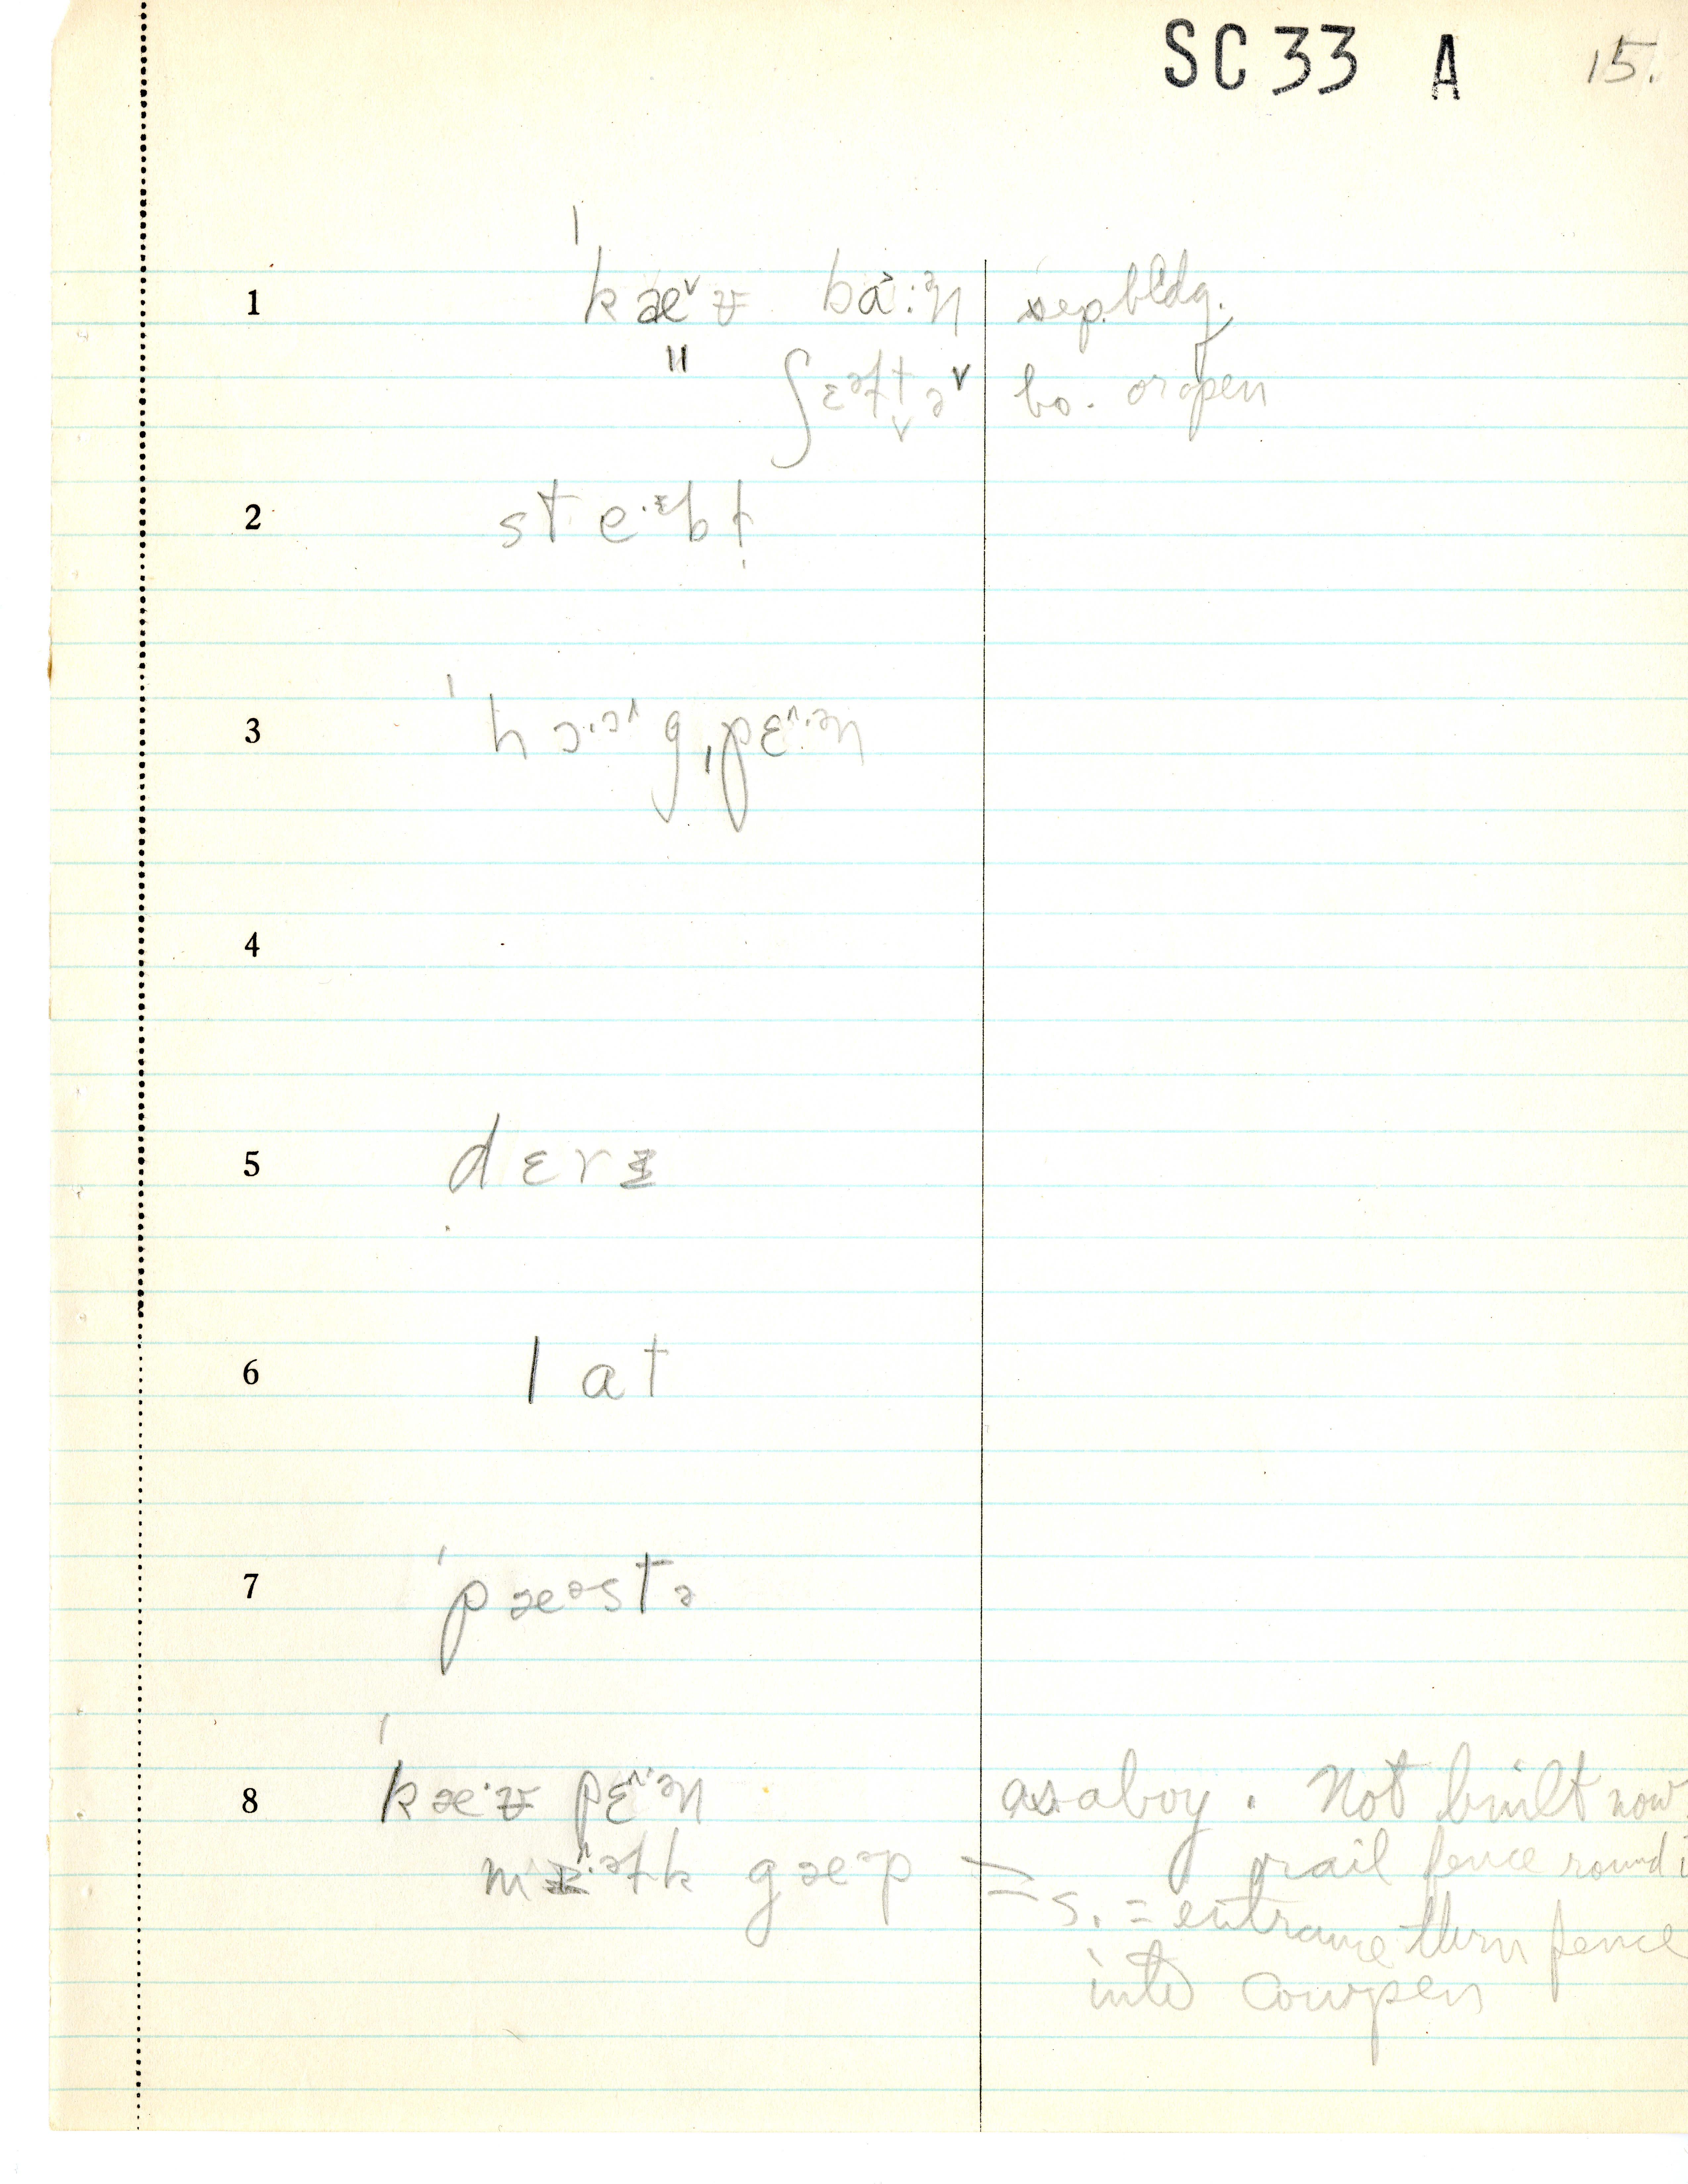 SC 33 A 15.
1 ˈkæ˅ʉ bɑ˃:ᵊn sep. bldg.
" ʃɛᵊɫt̬ə˅ bo. or open
2 ste·ᵻbɫ̩
3 ˈhɔ·ɔ^g ˌpɛ^·ᵊn
4
5 dɛrᵻ
6 lat
7 ˈpæᵊstə
8 ˈkæ·ʉ pɛ^·ᵊn as a boy. Not built now.
mɪ^·ᵊɫk gæᵊp rail fence round
= s. = entrance thru fence
into cowpen